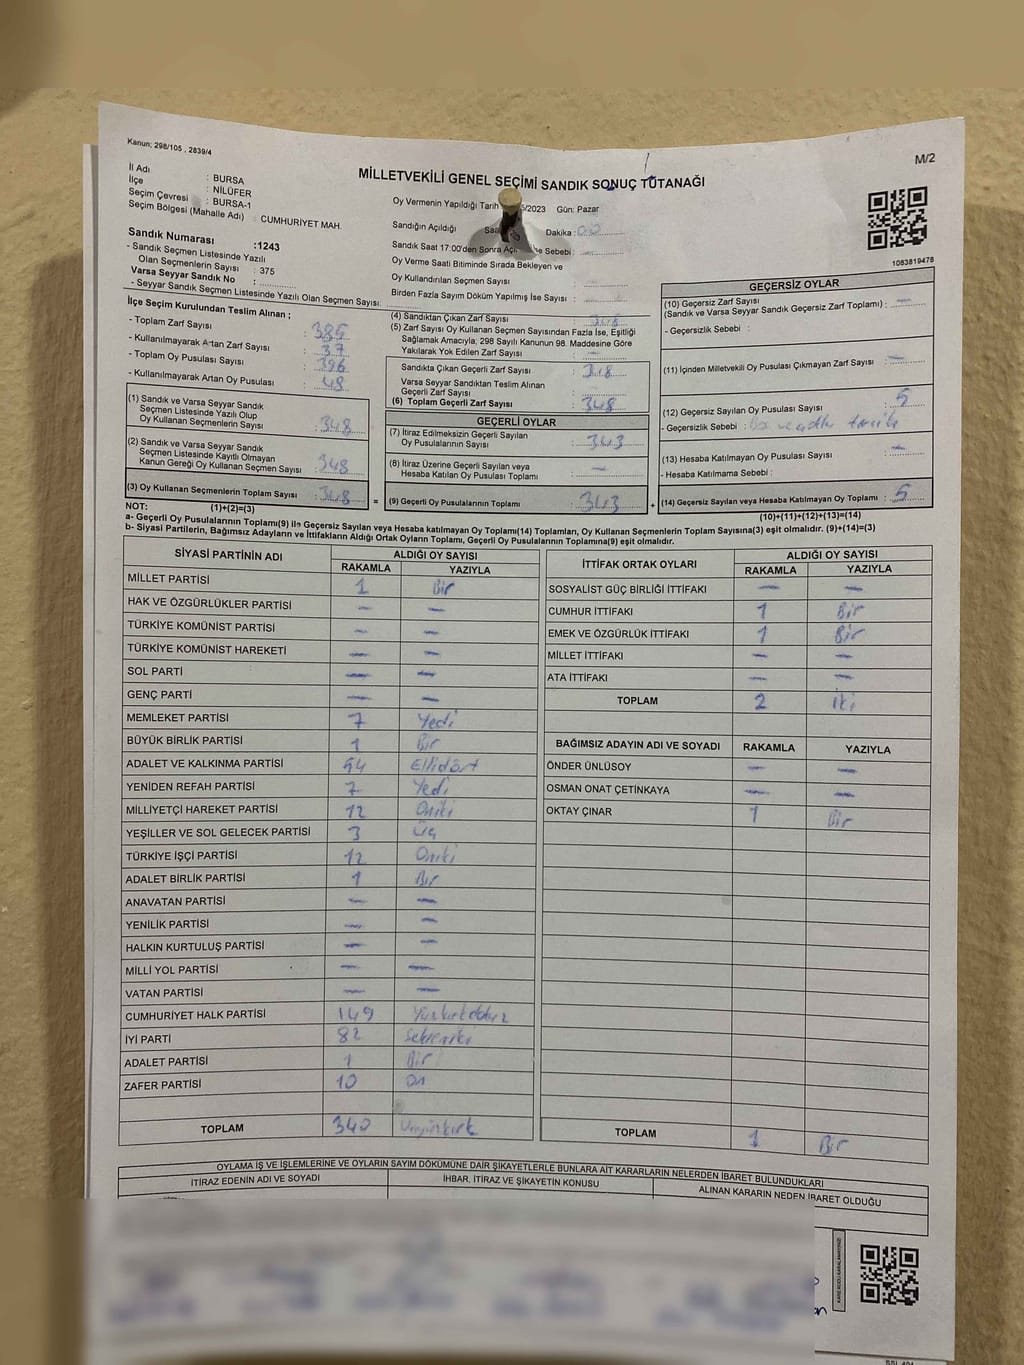 Kanun; 298/105 , 2839/4
M/2
MİLLETVEKİLİ GENEL SEÇİMİ SANDIK SONUÇ TUTANAĞI
İl Adı : BURSA
İlçe : NİLÜFER
Seçim Çevresi : BURSA-1
Seçim Bölgesi (Mahalle Adı) CUMHURİYET MAH.
Sandık Numarası :1243
- Sandık Seçmen Listesinde Yazılı
Olan Seçmenlerin Sayısı : 375
Varsa Seyyar Sandık No :
- Seyyar Sandık Seçmen Listesinde Yazılı Olan Seçmen Sayısı:
Oy Vermenin Yapıldığı Tarih 5/2023 Gün: Pazar
Sandığın Açıldığı Dakika :
Sandık Saat 17:00'den Sonra Sebebi :
Oy Verme Saati Bitiminde Sırada Bekleyen ve
Oy Kullandırılan Seçmen Sayısı :
Birden Fazla Sayım Döküm Yapılmış İse Sayısı :
1083819478
İlçe Seçim Kurulundan Teslim Alınan ;
- Toplam Zarf Sayısı : 385
- Kullanılmayarak Artan Zarf Sayısı : 37
- Toplam Oy Pusulası Sayısı : 396
- Kullanılmayarak Artan Oy Pusulası : 48
(1) Sandık ve Varsa Seyyar Sandık
Seçmen Listesinde Yazılı Olup
Oy Kullanan Seçmenlerin Sayısı : 348
(2) Sandık ve Varsa Seyyar Sandık
Seçmen Listesinde Kayıtlı Olmayan
Kanun Gereği Oy Kullanan Seçmen Sayısı : 348
(3) Oy Kullanan Seçmenlerin Toplam Sayısı : 348 =
(4) Sandıktan Çıkan Zarf Sayısı : 348
(5) Zarf Sayısı Oy Kullanan Seçmen Sayısından Fazla İse, Eşitliği
Sağlamak Amacıyla; 298 Sayılı Kanunun 98. Maddesine Göre
Yakılarak Yok Edilen Zarf Sayısı : —
Sandıkta Çıkan Geçerli Zarf Sayısı : 348
Varsa Seyyar Sandıktan Teslim Alınan
Geçerli Zarf Sayısı :
(6) Toplam Geçerli Zarf Sayısı : 348
GEÇERLİ OYLAR
(7) İtiraz Edilmeksizin Geçerli Sayılan
Oy Pusulalarının Sayısı : 343
(8) İtiraz Üzerine Geçerli Sayılan veya
Hesaba Katılan Oy Pusulası Toplamı : —
(9) Geçerli Oy Pusulalarının Toplamı : 343 +
GEÇERSİZ OYLAR
(10) Geçersiz Zarf Sayısı
(Sandık ve Varsa Seyyar Sandık Geçersiz Zarf Toplamı) : —
- Geçersizlik Sebebi :
(11) İçinden Milletvekili Oy Pusulası Çıkmayan Zarf Sayısı : —
(12) Geçersiz Sayılan Oy Pusulası Sayısı : 5
- Geçersizlik Sebebi :
(13) Hesaba Katılmayan Oy Pusulası Sayısı : —
- Hesaba Katılmama Sebebi :
(14) Geçersiz Sayılan veya Hesaba Katılmayan Oy Toplamı : 5
NOT: (1)+(2)=(3)
(10)+(11)+(12)+(13)=(14)
a- Geçerli Oy Pusulalarının Toplamı(9) ile Geçersiz Sayılan veya Hesaba katılmayan Oy Toplamı(14) Toplamları, Oy Kullanan Seçmenlerin Toplam Sayısına(3) eşit olmalıdır. (9)+(14)=(3)
b- Siyasi Partilerin, Bağımsız Adayların ve İttifakların Aldığı Ortak Oyların Toplamı, Geçerli Oy Pusulalarının Toplamına(9) eşit olmalıdır.
SİYASİ PARTİNİN ADI ALDIĞI OY SAYISI
RAKAMLA YAZIYLA
MİLLET PARTİSİ 1 Bir
HAK VE ÖZGÜRLÜKLER PARTİSİ — —
TÜRKİYE KOMÜNİST PARTİSİ — —
TÜRKİYE KOMÜNİST HAREKETİ — —
SOL PARTİ — —
GENÇ PARTİ — —
MEMLEKET PARTİSİ 7 Yedi
BÜYÜK BİRLİK PARTİSİ 1 Bir
ADALET VE KALKINMA PARTİSİ 54 Ellidört
YENİDEN REFAH PARTİSİ 7 Yedi
MİLLİYETÇİ HAREKET PARTİSİ 12 Oniki
YEŞİLLER VE SOL GELECEK PARTİSİ 3 Üç
TÜRKİYE İŞÇİ PARTİSİ 12 Oniki
ADALET BİRLİK PARTİSİ 1 Bir
ANAVATAN PARTİSİ — —
YENİLİK PARTİSİ — —
HALKIN KURTULUŞ PARTİSİ — —
MİLLİ YOL PARTİSİ — —
VATAN PARTİSİ — —
CUMHURİYET HALK PARTİSİ 149 Yüzkırkdokuz
İYİ PARTİ 82 Sekseniki
ADALET PARTİSİ 1 Bir
ZAFER PARTİSİ 10 On
TOPLAM 340 Üçyüzkırk
İTTİFAK ORTAK OYLARI ALDIĞI OY SAYISI
RAKAMLA YAZIYLA
SOSYALİST GÜÇ BİRLİĞİ İTTİFAKI — —
CUMHUR İTTİFAKI 1 Bir
EMEK VE ÖZGÜRLÜK İTTİFAKI 1 Bir
MİLLET İTTİFAKI — —
ATA İTTİFAKI — —
TOPLAM 2 İki
BAĞIMSIZ ADAYIN ADI VE SOYADI RAKAMLA YAZIYLA
ÖNDER ÜNLÜSOY — —
OSMAN ONAT ÇETİNKAYA — —
OKTAY ÇINAR 1 Bir
TOPLAM 1 Bir
OYLAMA İŞ VE İŞLEMLERİNE VE OYLARIN SAYIM DÖKÜMÜNE DAİR ŞİKAYETLERLE BUNLARA AİT KARARLARIN NELERDEN İBARET BULUNDUKLARI
İTİRAZ EDENİN ADI VE SOYADI İHBAR, İTİRAZ VE ŞİKAYETİN KONUSU ALINAN KARARIN NEDEN İBARET OLDUĞU